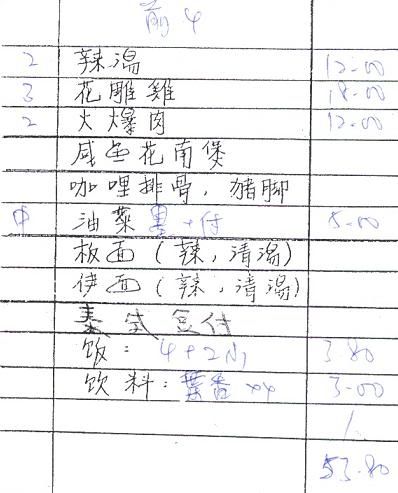 前 4
2 辣湯 12.00
3 花雕雞 18.00
2 火爆肉 12.00
咸鱼花南煲
咖哩排骨, 豬脚
中 油菜 5.00
板面 (辣, 清湯)
伊面 (辣, 清湯)
式豆付
饭: 4+2小 3.80
饮料: x4 3.00
53.80